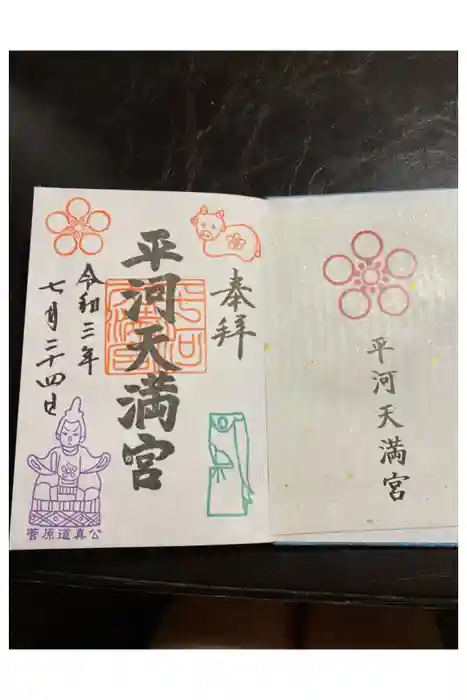 平河天満宮
奉拝
平河天満宮
令和三年
七月二十四日
菅原道真公